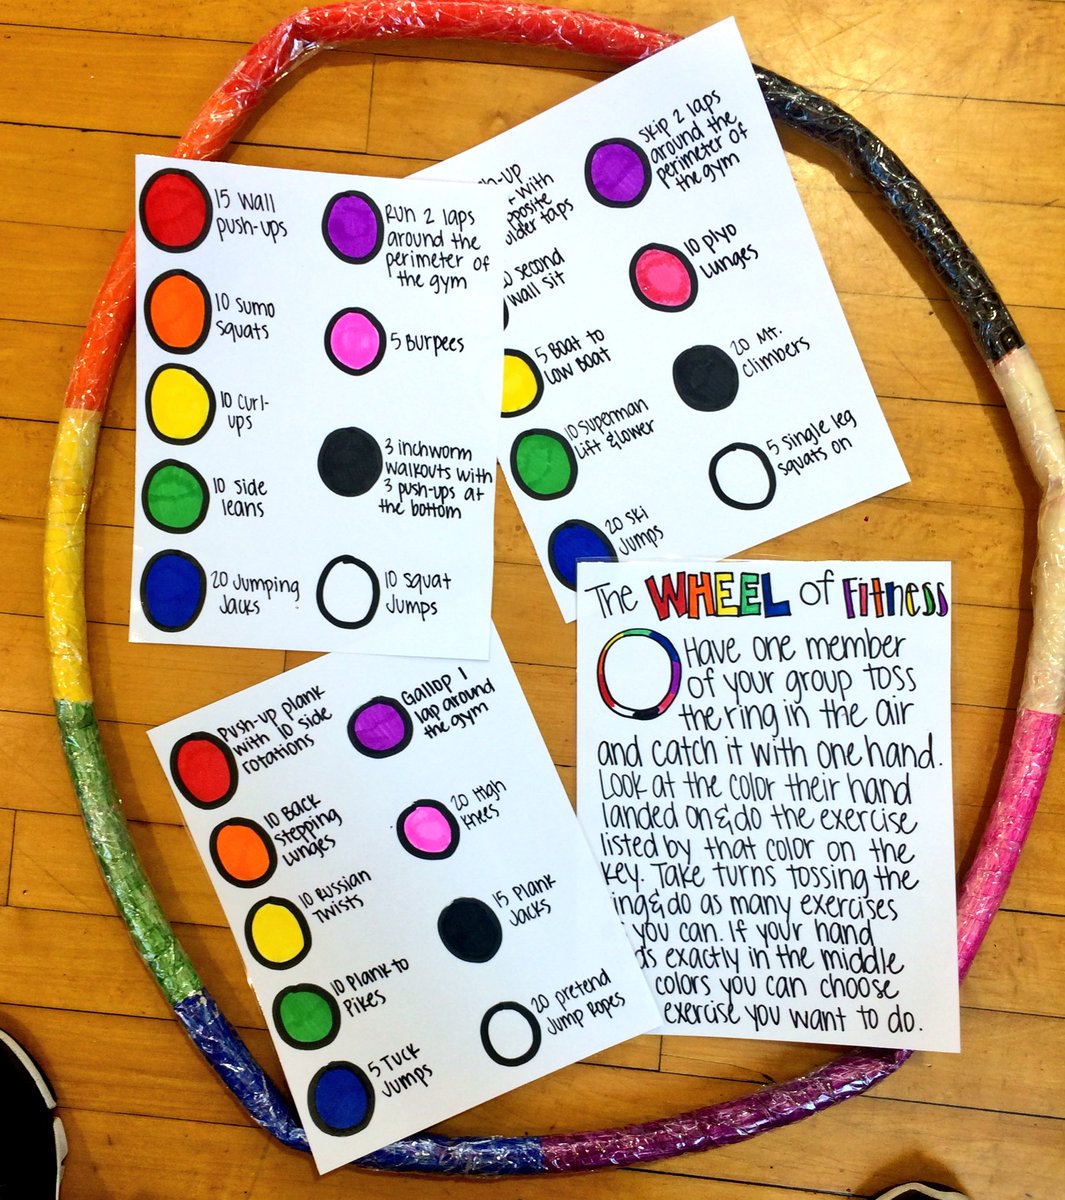 15 Wall
push-ups
10 Sumo
squats
10 Curl-
ups
10 side
leans
20 Jumping
Jacks
Run 2 laps
around the
perimeter of
the gym
5 Burpees
3 inchworm
walkouts with
3 push-ups at
the bottom
10 Squat
Jumps
with
taps
second
Wall sit
5 Boat to
Low Boat
10 Superman
Lift & lower
20 Ski
Jumps
Skip 2 laps
around the
perimeter of
the gym
10 plyo
Lunges
20 Mt.
Climbers
5 Single leg
squats on
Push-up plank
with 10 side
rotations
10 Back
Stepping
Lunges
10 Russian
Twists
10 Plank to
Pikes
5 Tuck
Jumps
Gallop 1
lap around
the gym
20 High
Knees
15 Plank
Jacks
20 pretend
Jump Ropes
The WHEEL of Fitness
Have one member
of your group toss
the ring in the air
and catch it with one hand.
Look at the color their hand
landed on & do the exercise
listed by that color on the
key. Take turns tossing the
ing & do as many exercises
you can. If your hand
ds exactly in the middle
colors you can choose
exercise you want to do.